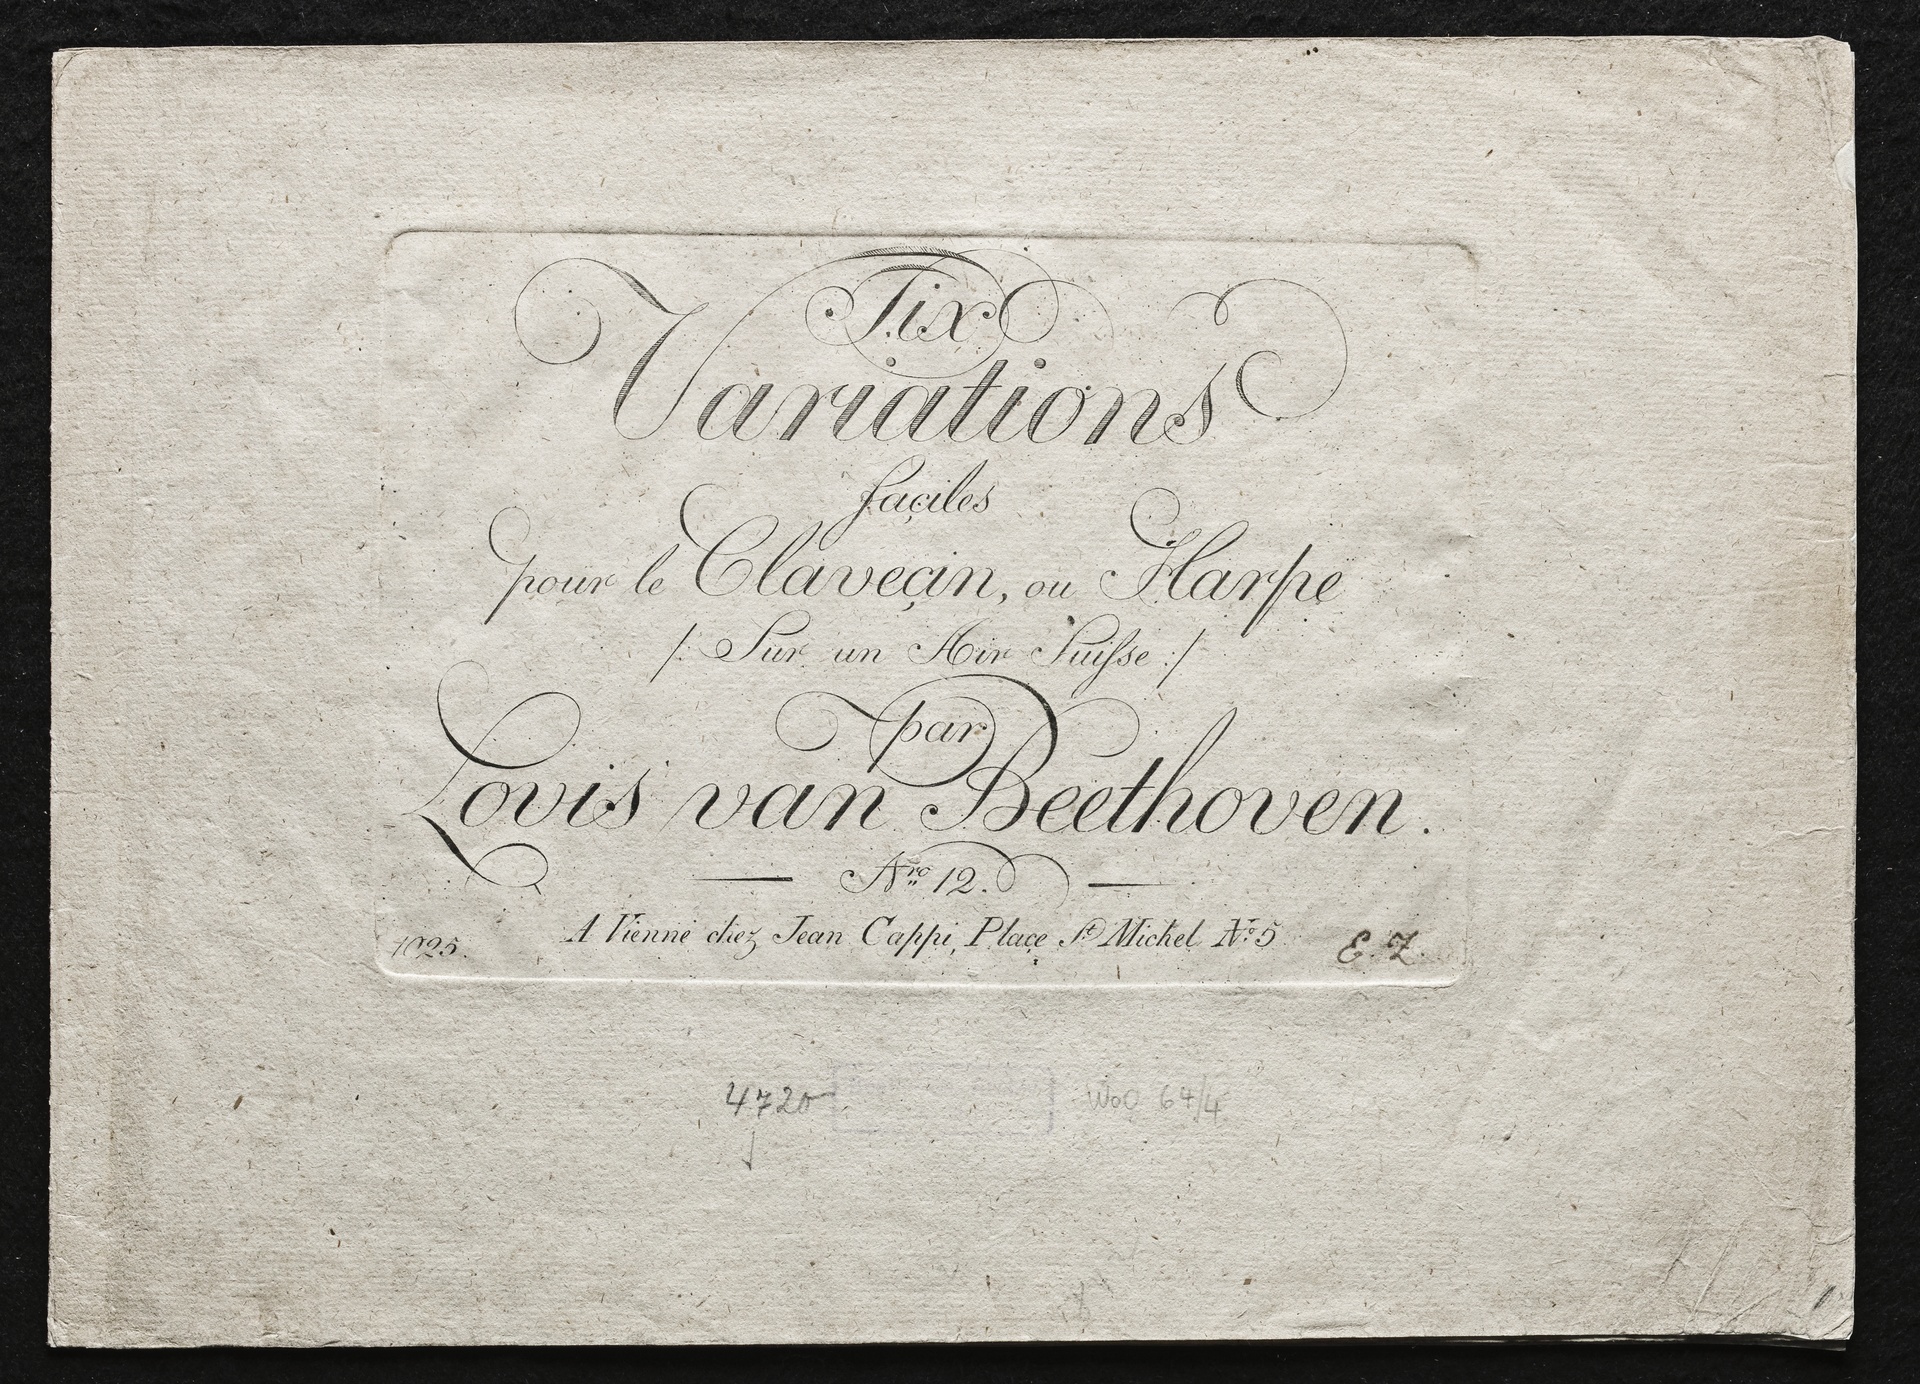 Six
Variations
façiles
pour le Claveçin, ou Harpe
/: Sur un Air Suisse :/
par
Lovis van Beethoven.
Nro 12.
A Vienne chez Jean Cappi, Plaçe St Michel No 5
1025.
E. Z.
WoO 64/4